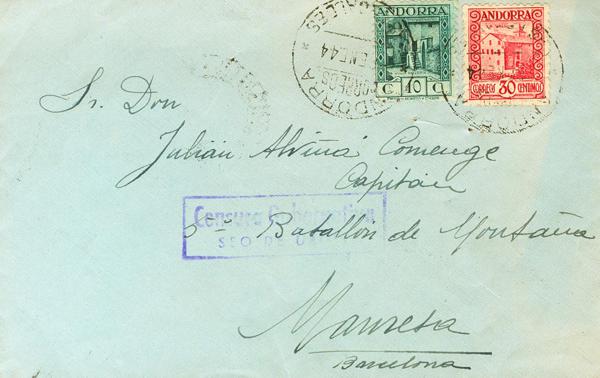 ANDORRA
C 10 C
ANDORRA
CORREOS 30 CENTIMOS
ANDORRA
CORREOS
ENE 44
Sr. Don
Julián Alviñá Comenge
Capitán
Censura Gubernativa
SEO DE
5º Batallón de Montaña
Manresa
Barcelona